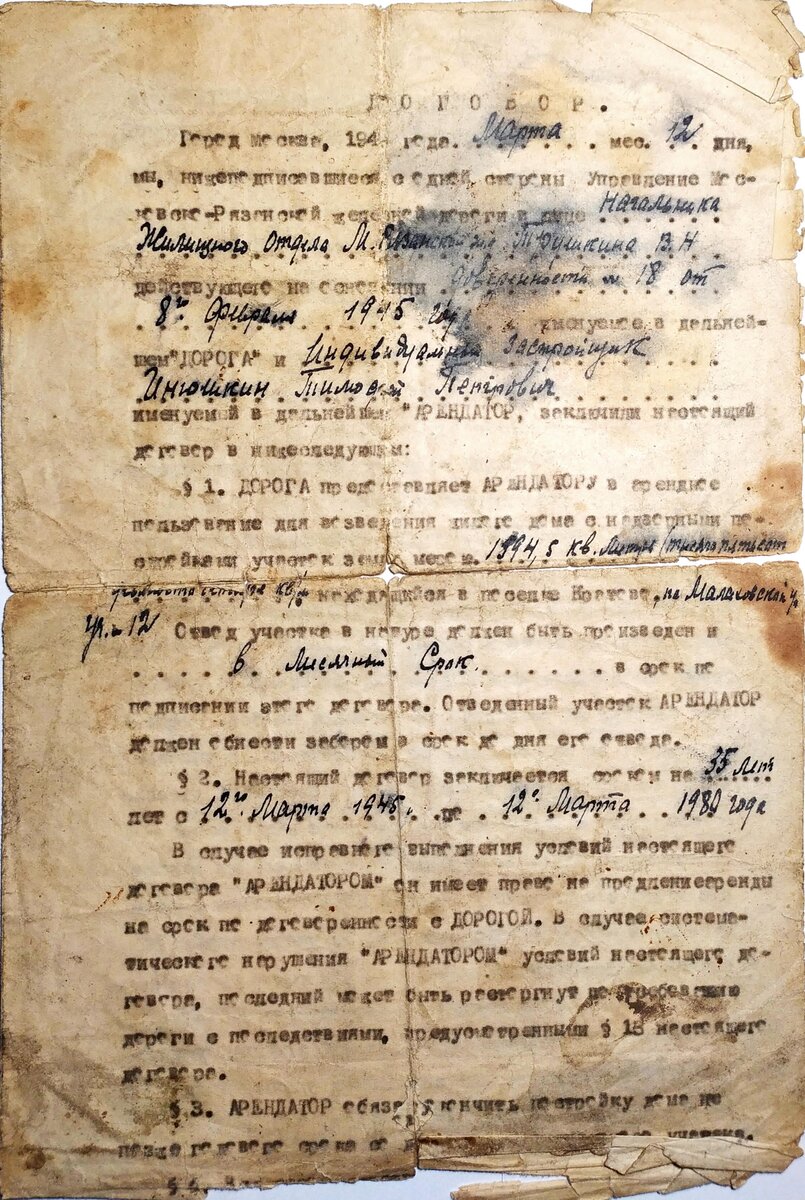 ДОГОВОР.
Город Москва, 194 года. Марта мес. 12 дня,
мы, нижеподписавшиеся с одной стороны Управление Мос-
ковско-Рязанской железной дороги в лице Начальника
Жилищного отдела М. Рязанской В.Н
действующего на основании доверенности № 18 от
8го Февраля 1945 года именуемое в дальней-
шем "ДОРОГА" и Индивидуальный Застройщик
Инюшкин Тимофей Петрович
именуемой в дальнейшем "АРЕНДАТОР, заключили настоящий
договор в нижеследующем:
§ 1. ДОРОГА предоставляет АРЕНДАТОРУ в арендное
пользование для возведения жилого дома с надворными по-
стройками участок земли мерою. 1594,5 кв. метры /тысяча пятьсот
находящийся в поселке Кратово, по Малаховской ул
уч. № 12
Отвод участка в натуре должен быть произведен и
в месячный Срок. в срок по
подписании этого договора. Отведенный участок АРЕНДАТОР
должен обнести забором в срок до дня его отвода.
§ 2. Настоящий договор заключается сроком на 35 лет
лет с 12го Марта 1945г. по 12го Марта 1980 года
В случае исправного выполнения условий настоящего
договора "АРЕНДАТОРОМ" он имеет право на продление аренды
на срок по договоренности с ДОРОГОЙ. В случае система-
тического нарушения "АРЕНДАТОРОМ" условий настоящего до-
говора, последний может быть расторгнут по требованию
дороги с последствиями, предусмотренными § 18 настоящего
договора.
§ 3. АРЕНДАТОР обязан окончить постройку дома не
позже годового срока со участка.
§ 4.